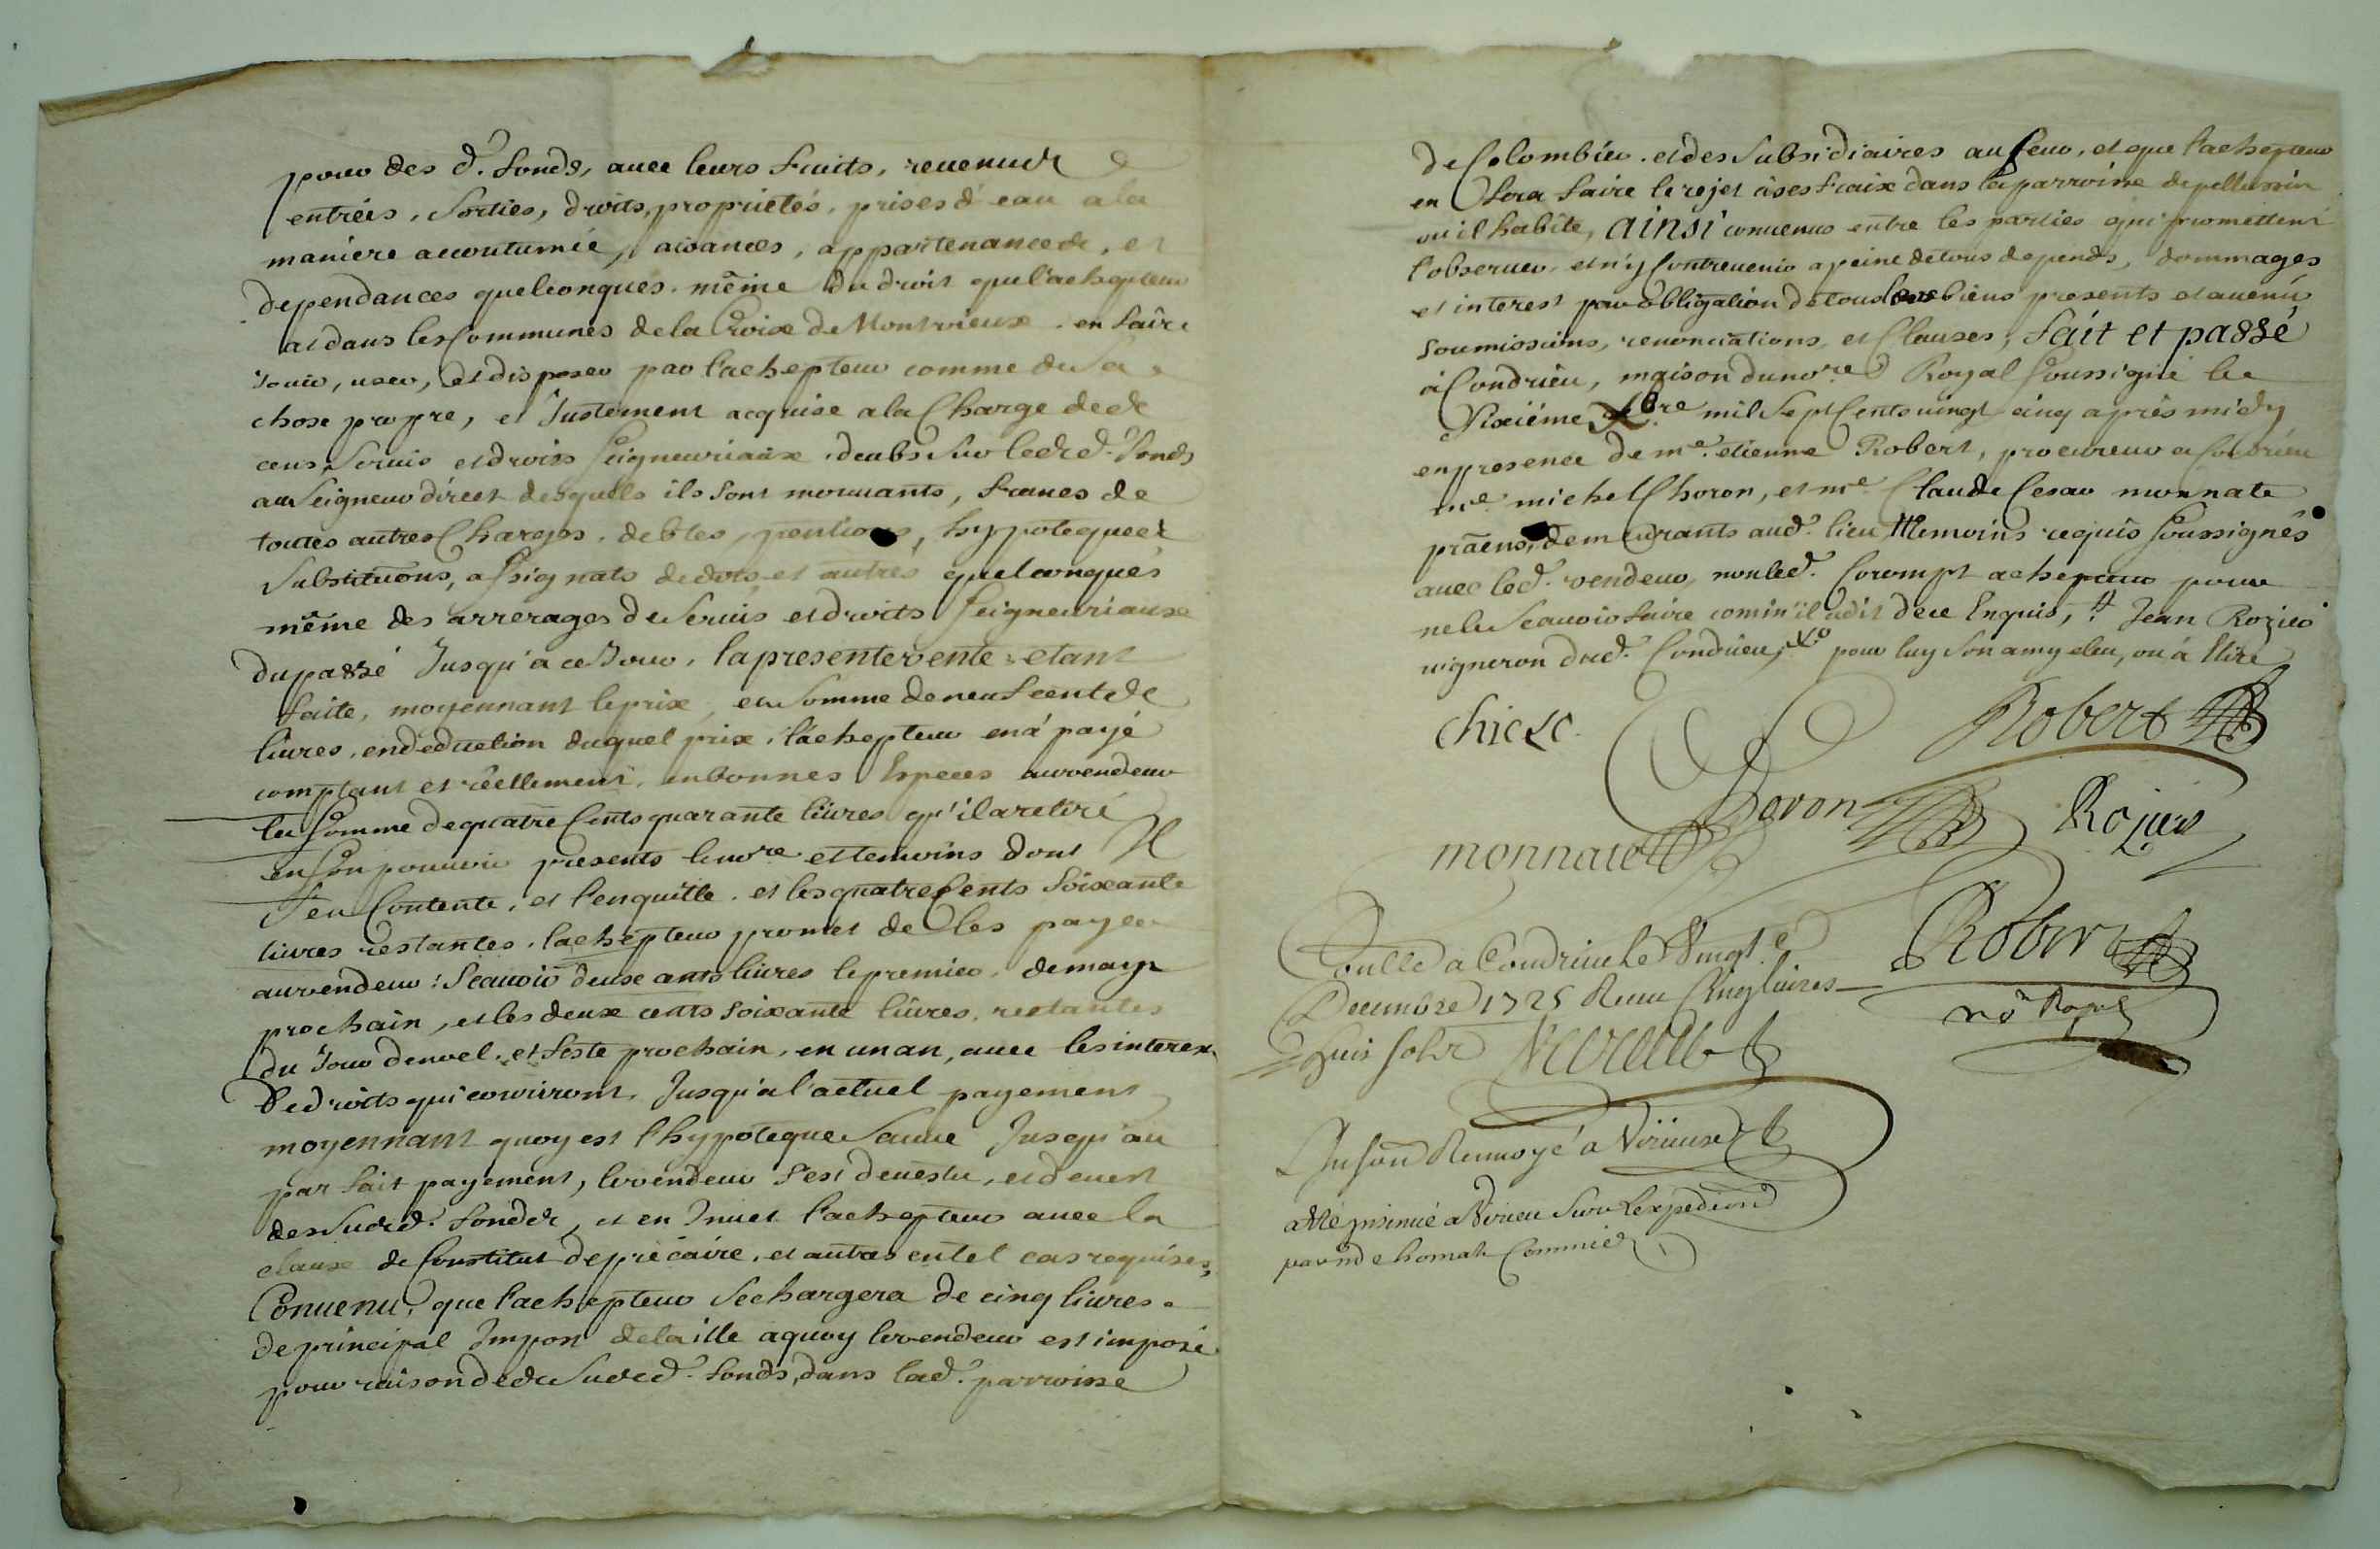 pour des d. fonds, avec leurs fruits, revenuds
entrées, sorties, droits, proprietés, prises d'eau a la
maniere accoutumée, aisances, appartenances, et
dependances quelconques. même du droit que l'achepteur
at dans les Communes de la Croix de Montvieux. en faire
Jouir, user, et disposer par l'achepteur comme de sa
chose propre, et Justement acquise a la Charge des
cens, servis et droits seigneuriaux, deubs sur lesd. fonds
au seigneur direct desquels ils sont mouvants, francs de
toutes autres Charges, debtes, pentions, hypoteques
Substituons, assignats de dots et autres quelconques
même des arrerages de servis et droits seigneuriaux
du passé Jusqu'a ce Jour. la presente vente etant
faite, moyennant le prix, et somme de neuf cents
livres, en deduction duquel prix, l'achepteur en a payé
comptant et réellement, en bonnes Especes au vendeur
la somme de quatre Cents quarante livres qu'il a retiré
en son pouvoir presents le nore et temoins dont Il
s'en Contente, et l'en quitte. et les quatre Cents soixante
livres restantes, l'achepteur promet de les payer
au vendeur: scavoir deux cents livres le premier de may
prochain, et les deux cents soixante livres, restantes
du Jour de noel. et feste prochain, en un an, avec les interets
de droits qui courriront Jusqu'a l'actuel payement
moyennant quoy est l'hypoteque sauve Jusqu'au
parfait payement, le vendeur s'est devestu, et devest
des susd. fonds, et en Invet l'achepteur avec la
clause de Constitut de précaire, et autres en tel cas requises,
Convenu, que l'achepteur se chargera de cinq livres
de principal Impost de taille a quoy le vendeur est imposé
pour raison de susd. fonds, dans lad. parroisse
de Colombier. et des subsidiaires au feur, et que l'achepteur
en fera faire le rejet à ses fraix dans la parroisse de pellussin
ou il habite, ainsi convenus entre les parties qui promettent
l'observer, et n'y Contrevenir a peine de tous depends, dommages
et interest par obligation de tous leurs biens presents et avenir
soumissions, renonciations, et Clauses, fait et passé
à Condrieu, maison du nore Royal soussigné le
sixiéme Xbre mil sept Cents vingt cinq après midy
en presence de me. etienne Robert, procureur a Condrieu
me. michel Choron, et me. Claude Cesar monnate
prãens, demeurants aud. lieu temoins requis soussignés
avec led. vendeur, non led. Corompt achepteur pour
ne le scavoir faire comm'il a dit de ce Enquis, Jean Rozier
vigneron dud. Condrieu, pour luy son amy eleu, ou à Elire
chieze
Robert
Choron
Rozier
monnate
Conllé a Condrieu le Vingte
Decembre 1725 Receu Cinq livres
Huit sols
Robert
no. Royal
Insõn Renvoyé a Virieux
a été Insinué a Virieu sur l'expedition